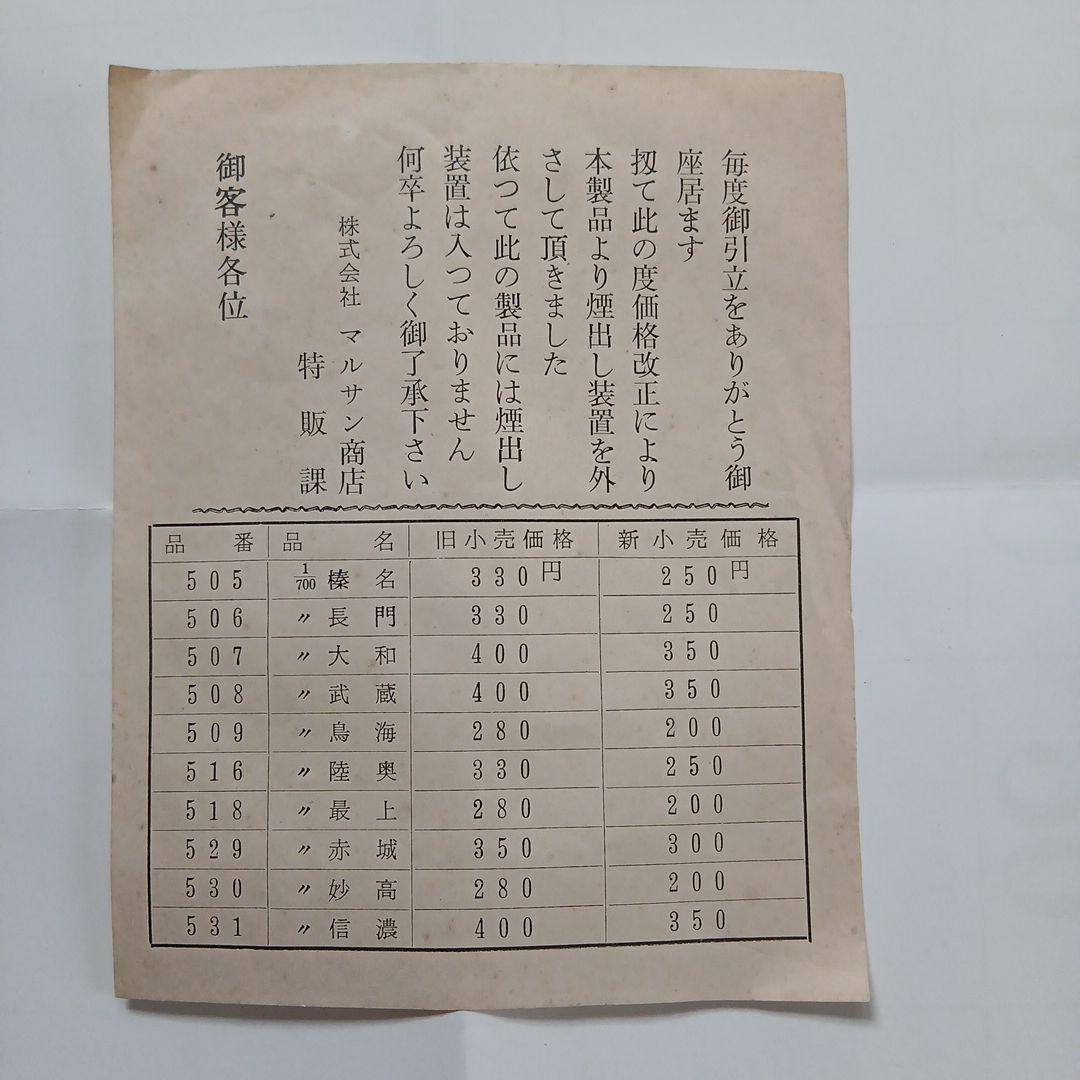 毎度御引立をありがとう御
座居ます
扨て此の度価格改正により
本製品より煙出し装置を外
さして頂きました
依つて此の製品には煙出し
装置は入つておりません
何卒よろしく御了承下さい
株式会社 マルサン商店
特販課
御客様各位
品番 品名 旧小売価格 新小売価格
505 1/700 榛名 330円 250円
506 〃 長門 330 250
507 〃 大和 400 350
508 〃 武蔵 400 350
509 〃 鳥海 280 200
516 〃 陸奥 330 250
518 〃 最上 280 200
529 〃 赤城 350 300
530 〃 妙高 280 200
531 〃 信濃 400 350